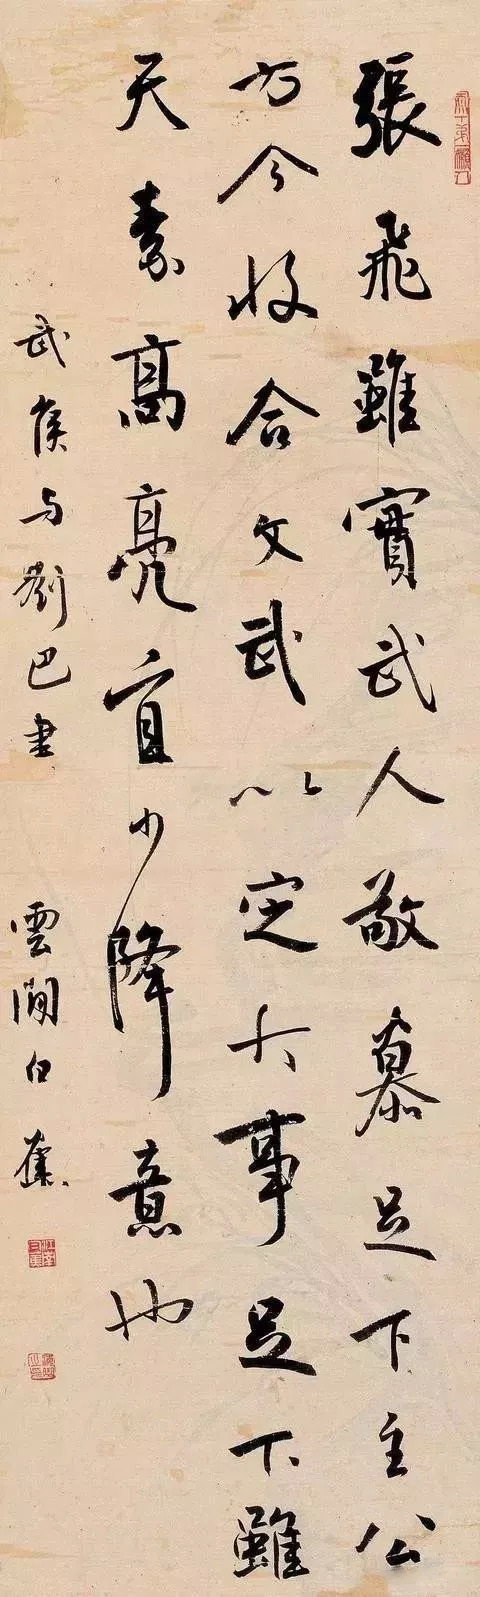 張飛雖實武人敬慕足下主公
方今收合文武以定大事足下雖
天素高亮宜少降意也
武侯与劉巴書
雲間白蕉